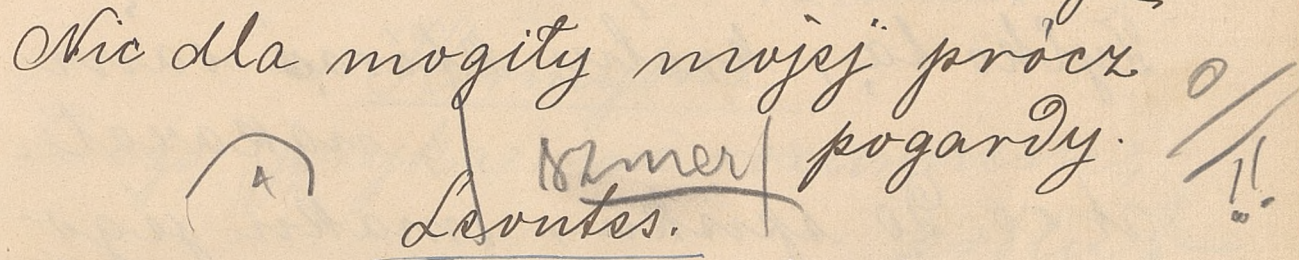 Nic dla mogiły mojej prócz
pogardy.
szmer
Leontes.